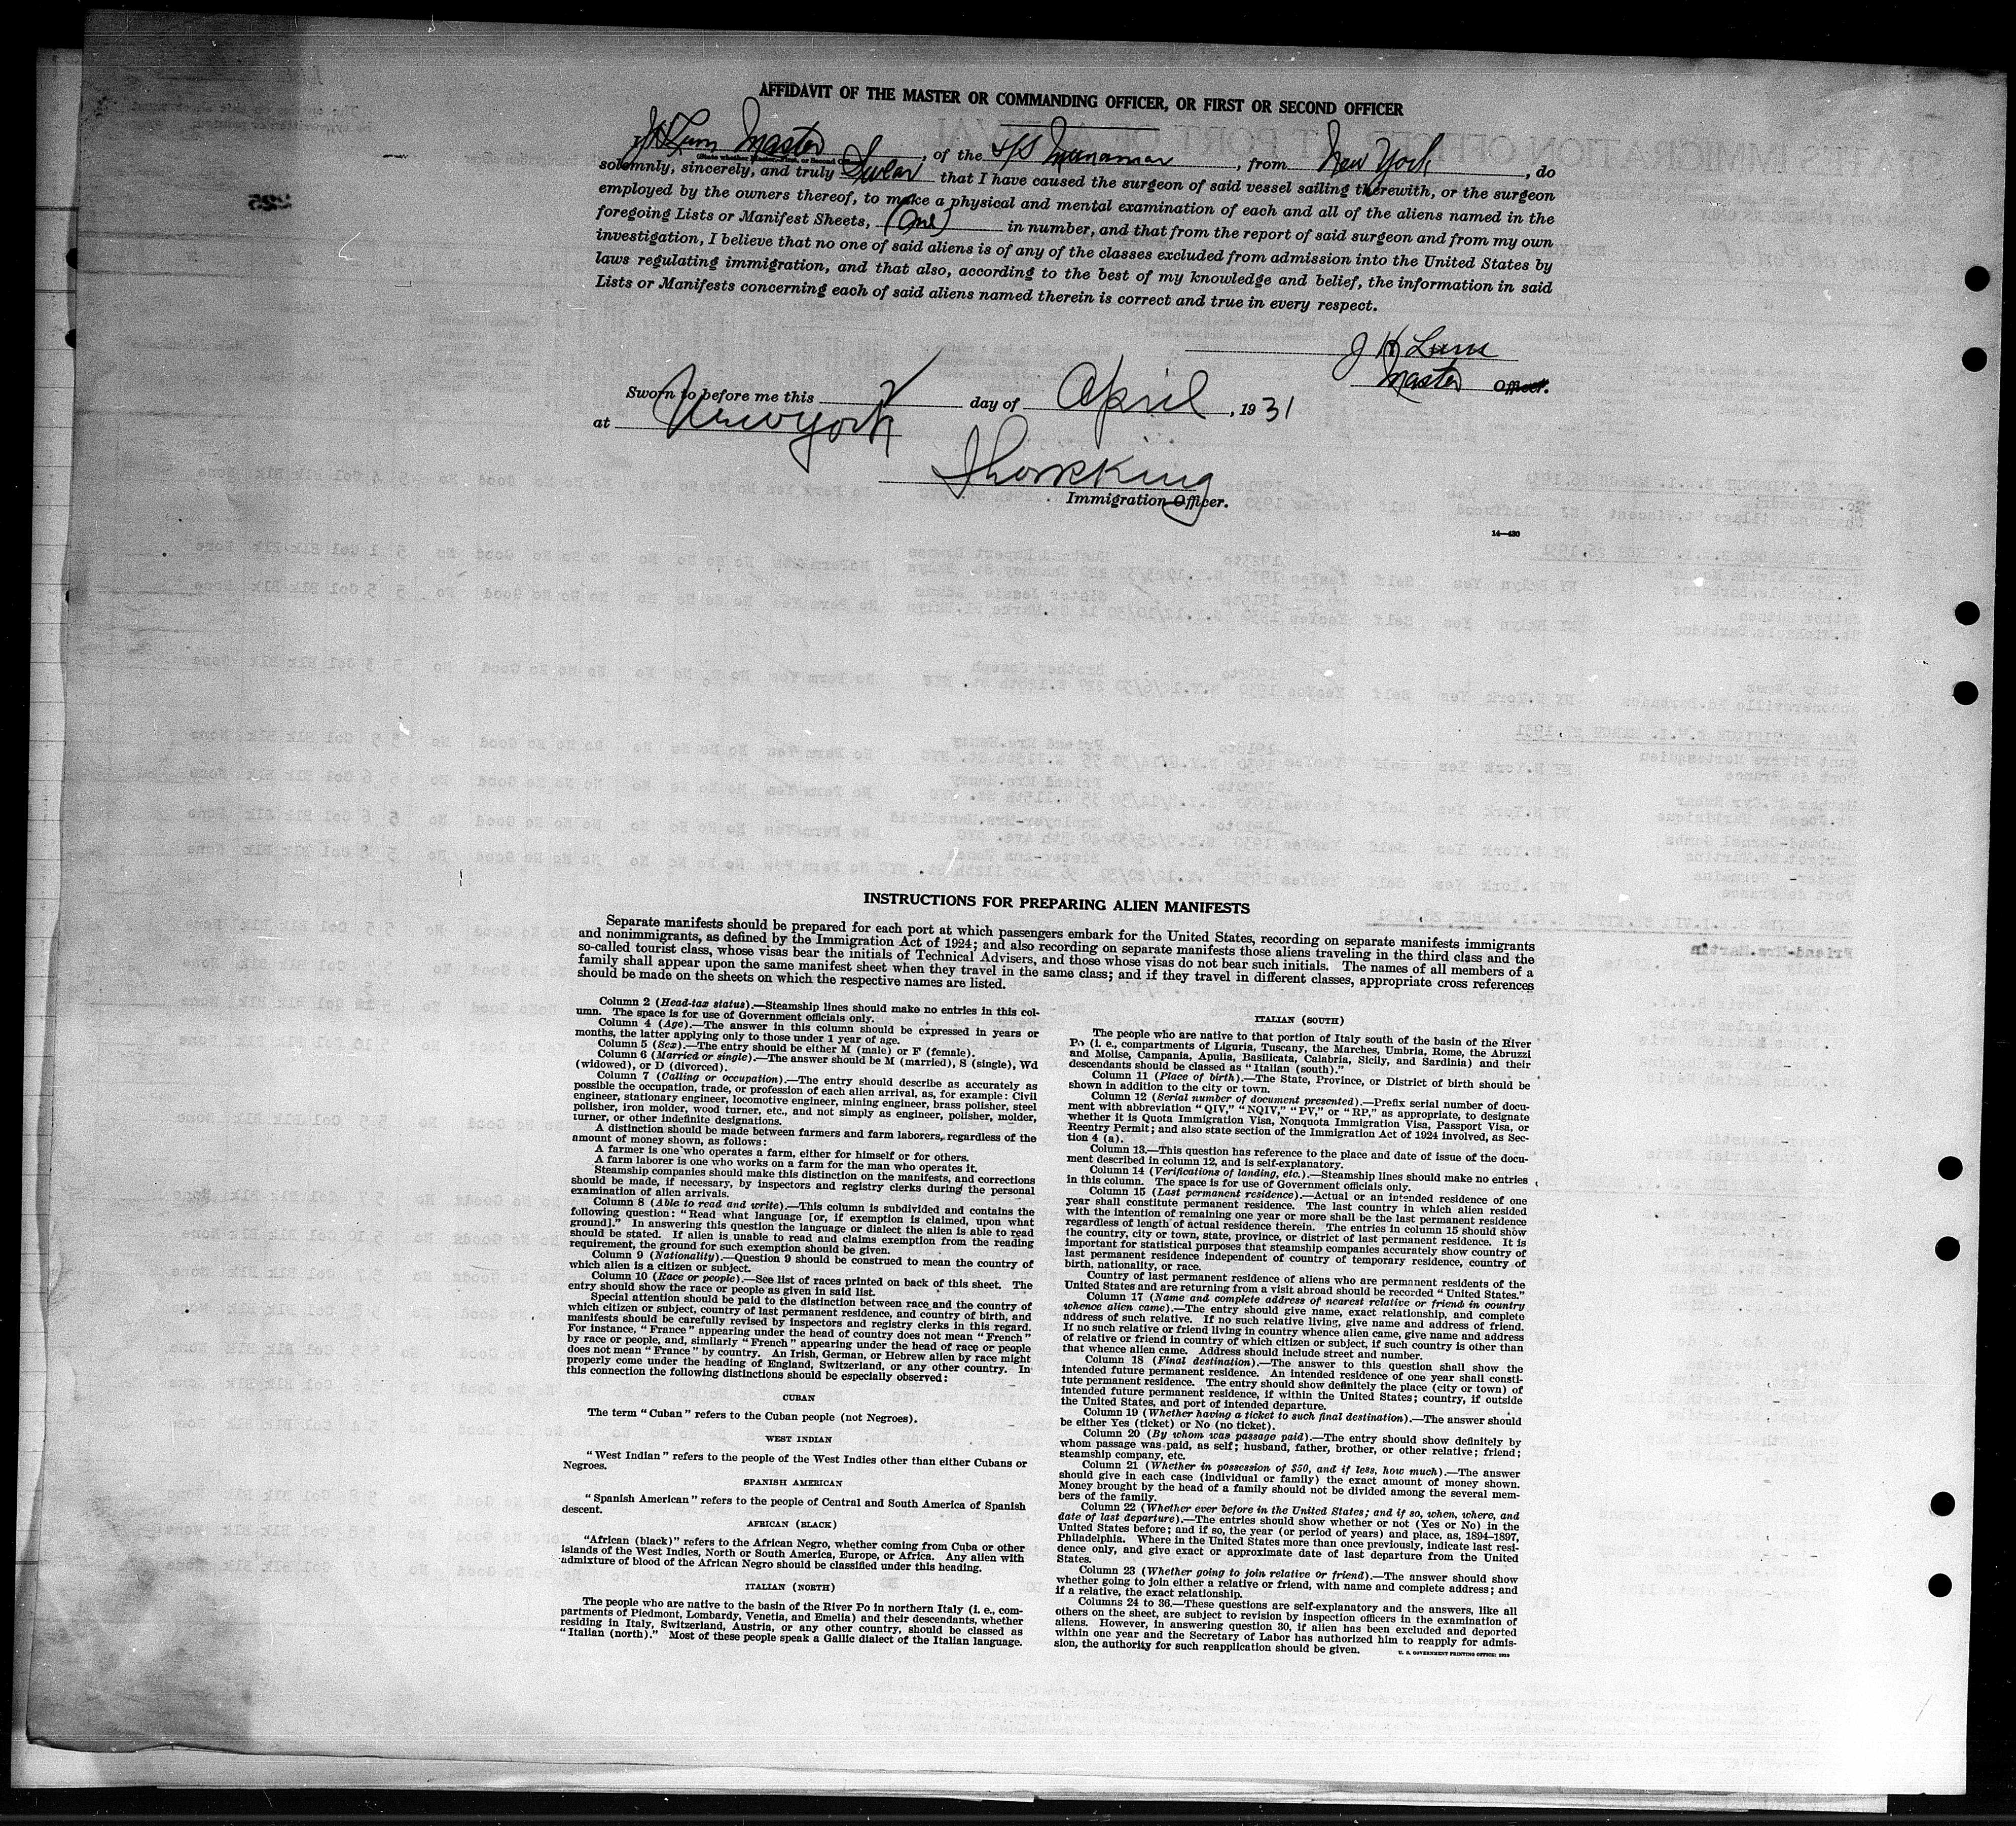 AFFIDAVIT OF THE MASTER OR COMMANDING OFFICER, OR FIRST OR SECOND OFFICER
I, J H Lum Master, of the S/S Munamar, from New York, do
(State whether Master, First, or Second Officer)
solemnly, sincerely, and truly Swear that I have caused the surgeon of said vessel sailing therewith, or the surgeon
employed by the owners thereof, to make a physical and mental examination of each and all of the aliens named in the
foregoing Lists or Manifest Sheets, (One) in number, and that from the report of said surgeon and from my own
investigation, I believe that no one of said aliens is of any of the classes excluded from admission into the United States by
laws regulating immigration, and that also, according to the best of my knowledge and belief, the information in said
Lists or Manifests concerning each of said aliens named therein is correct and true in every respect.
J H Lum
Master Officer.
Sworn to before me this 2 day of April, 1931
at New York
Immigration Officer.
14—430
INSTRUCTIONS FOR PREPARING ALIEN MANIFESTS
Separate manifests should be prepared for each port at which passengers embark for the United States, recording on separate manifests immigrants
and nonimmigrants, as defined by the Immigration Act of 1924; and also recording on separate manifests those aliens traveling in the third class and the
so-called tourist class, whose visas bear the initials of Technical Advisers, and those whose visas do not bear such initials. The names of all members of a
family shall appear upon the same manifest sheet when they travel in the same class; and if they travel in different classes, appropriate cross references
should be made on the sheets on which the respective names are listed.
Column 2 (Head-tax status).—Steamship lines should make no entries in this col-
umn. The space is for use of Government officials only.
Column 4 (Age).—The answer in this column should be expressed in years or
months, the latter applying only to those under 1 year of age.
Column 5 (Sex).—The entry should be either M (male) or F (female).
Column 6 (Married or single).—The answer should be M (married), S (single), Wd
(widowed), or D (divorced).
Column 7 (Calling or occupation).—The entry should describe as accurately as
possible the occupation, trade, or profession of each alien arrival, as, for example: Civil
engineer, stationary engineer, locomotive engineer, mining engineer, brass polisher, steel
polisher, iron molder, wood turner, etc., and not simply as engineer, polisher, molder,
turner, or other indefinite designations.
A distinction should be made between farmers and farm laborers, regardless of the
amount of money shown, as follows:
A farmer is one who operates a farm, either for himself or for others.
A farm laborer is one who works on a farm for the man who operates it.
Steamship companies should make this distinction on the manifests, and corrections
should be made, if necessary, by inspectors and registry clerks during the personal
examination of alien arrivals.
Column 8 (Able to read and write).—This column is subdivided and contains the
following question: "Read what language [or, if exemption is claimed, upon what
ground]." In answering this question the language or dialect the alien is able to read
should be stated. If alien is unable to read and claims exemption from the reading
requirement, the ground for such exemption should be given.
Column 9 (Nationality).—Question 9 should be construed to mean the country of
which alien is a citizen or subject.
Column 10 (Race or people).—See list of races printed on back of this sheet. The
entry should show the race or people as given in said list.
Special attention should be paid to the distinction between race and the country of
which citizen or subject, country of last permanent residence, and country of birth, and
manifests should be carefully revised by inspectors and registry clerks in this regard.
For instance, "France" appearing under the head of country does not mean "French"
by race or people, and, similarly "French" appearing under the head of race or people
does not mean "France" by country. An Irish, German, or Hebrew alien by race might
properly come under the heading of England, Switzerland, or any other country. In
this connection the following distinctions should be especially observed:
CUBAN
The term "Cuban" refers to the Cuban people (not Negroes).
WEST INDIAN
"West Indian" refers to the people of the West Indies other than either Cubans or
Negroes.
SPANISH AMERICAN
"Spanish American" refers to the people of Central and South America of Spanish
descent.
AFRICAN (BLACK)
"African (black)" refers to the African Negro, whether coming from Cuba or other
islands of the West Indies, North or South America, Europe, or Africa. Any alien with
admixture of blood of the African Negro should be classified under this heading.
ITALIAN (NORTH)
The people who are native to the basin of the River Po in northern Italy (i. e., com-
partments of Piedmont, Lombardy, Venetia, and Emelia) and their descendants, whether
residing in Italy, Switzerland, Austria, or any other country, should be classed as
"Italian (north)." Most of these people speak a Gallic dialect of the Italian language.
ITALIAN (SOUTH)
The people who are native to that portion of Italy south of the basin of the River
Po (i. e., compartments of Liguria, Tuscany, the Marches, Umbria, Rome, the Abruzzi
and Molise, Campania, Apulia, Basilicata, Calabria, Sicily, and Sardinia) and their
descendants should be classed as "Italian (south)."
Column 11 (Place of birth).—The State, Province, or District of birth should be
shown in addition to the city or town.
Column 12 (Serial number of document presented).—Prefix serial number of docu-
ment with abbreviation "QIV," "NQIV," "PV," or "RP," as appropriate, to designate
whether it is Quota Immigration Visa, Nonquota Immigration Visa, Passport Visa, or
Reentry Permit; and also state section of the Immigration Act of 1924 involved, as Sec-
tion 4 (a).
Column 13.—This question has reference to the place and date of issue of the docu-
ment described in column 12, and is self-explanatory.
Column 14 (Verifications of landing, etc.).—Steamship lines should make no entries
in this column. The space is for use of Government officials only.
Column 15 (Last permanent residence).—Actual or an intended residence of one
year shall constitute permanent residence. The last country in which alien resided
with the intention of remaining one year or more shall be the last permanent residence
regardless of length of actual residence therein. The entries in column 15 should show
the country, city or town, state, province, or district of last permanent residence. It is
important for statistical purposes that steamship companies accurately show country of
last permanent residence independent of country of temporary residence, country of
birth, nationality, or race.
Country of last permanent residence of aliens who are permanent residents of the
United States and are returning from a visit abroad should be recorded "United States."
Column 17 (Name and complete address of nearest relative or friend in country
whence alien came).—The entry should give name, exact relationship, and complete
address of such relative. If no such relative living, give name and address of friend.
If no such relative or friend living in country whence alien came, give name and address
of relative or friend in country of which citizen or subject, if such country is other than
that whence alien came. Address should include street and number.
Column 18 (Final destination).—The answer to this question shall show the
intended future permanent residence. An intended residence of one year shall consti-
tute permanent residence. The entry should show definitely the place (city or town) of
intended future permanent residence, if within the United States; country, if outside
the United States, and port of intended departure.
Column 19 (Whether having a ticket to such final destination).—The answer should
be either Yes (ticket) or No (no ticket).
Column 20 (By whom was passage paid).—The entry should show definitely by
whom passage was paid, as self; husband, father, brother, or other relative; friend;
steamship company, etc.
Column 21 (Whether in possession of $50, and if less, how much).—The answer
should give in each case (individual or family) the exact amount of money shown.
Money brought by the head of a family should not be divided among the several mem-
bers of the family.
Column 22 (Whether ever before in the United States; and if so, when, where, and
date of last departure).—The entries should show whether or not (Yes or No) in the
United States before; and if so, the year (or period of years) and place, as, 1894–1897,
Philadelphia. Where in the United States more than once previously, indicate last resi-
dence only, and give exact or approximate date of last departure from the United
States.
Column 23 (Whether going to join relative or friend).—The answer should show
whether going to join either a relative or friend, with name and complete address; and
if a relative, the exact relationship.
Columns 24 to 36.—These questions are self-explanatory and the answers, like all
others on the sheet, are subject to revision by inspection officers in the examination of
aliens. However, in answering question 30, if alien has been excluded and deported
within one year and the Secretary of Labor has authorized him to reapply for admis-
sion, the authority for such reapplication should be given.
U. S. GOVERNMENT PRINTING OFFICE: 1929